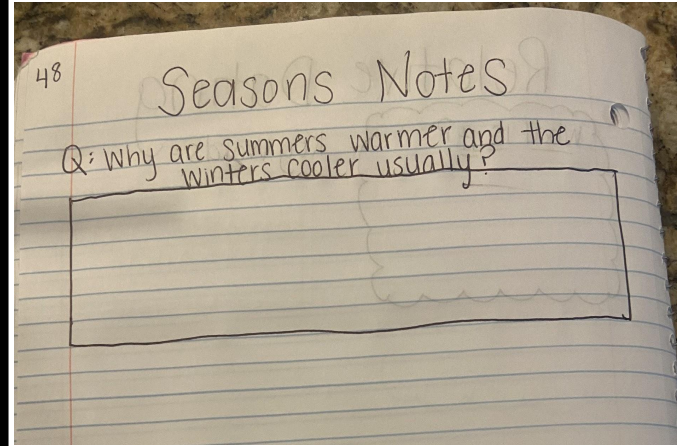 48
Seasons Notes
Q: Why are summers warmer and the
winters cooler usually?